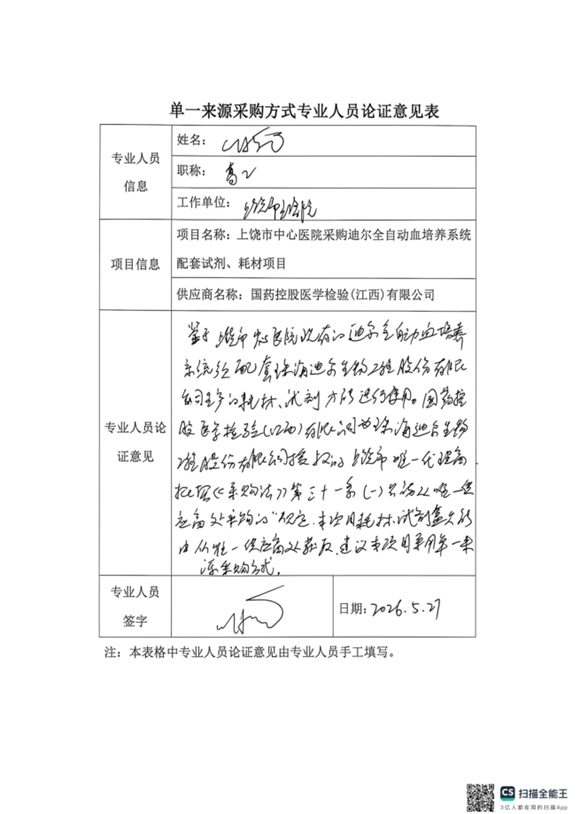 单一来源采购方式专业人员论证意见表
专业人员
信息
姓名：
职称：高工
工作单位：上饶市立医院
项目信息
项目名称：上饶市中心医院采购迪尔全自动血培养系统
配套试剂、耗材项目
供应商名称：国药控股医学检验(江西)有限公司
专业人员论
证意见
鉴于上饶市中心医院现有的迪尔全自动血培养
系统须配套珠海迪尔生物工程股份有限
公司生产的耗材、试剂才能进行使用。国药控
股医学检验(江西)有限公司为珠海迪尔生物
工程股份有限公司授权的上饶市唯一代理商
根据《采购法》第三十一条(一)只能从唯一供
应商处采购的"规定，本项目耗材、试剂盒只能
由从唯一供应商处获取，建议本项目采用单一来
源采购方式。
专业人员
签字
日期：2026.5.27
注：本表格中专业人员论证意见由专业人员手工填写。
CS 扫描全能王
3亿人都在用的扫描App